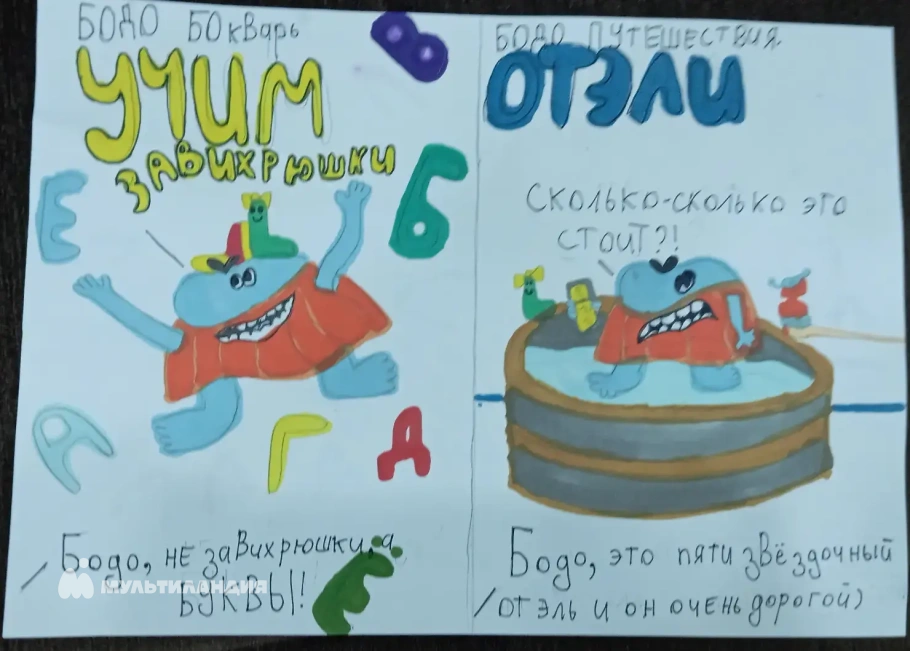 БОДО БОКВАРЬ
УЧИМ
ЗАВИХРЮШКИ
В
Е
Б
А
Г
Д
Бодо, НЕ ЗАВИХРЮШКИ, а
БУКВЫ!
Ё
МУЛЬТИЛАНДИЯ
БОДО ПУТЕШЕСТВИЯ
ОТЭЛИ
СКОЛЬКО-СКОЛЬКО ЭТО
СТОИТ?!
Бодо, это пятизвёздочный
отэль и он очень дорогой)